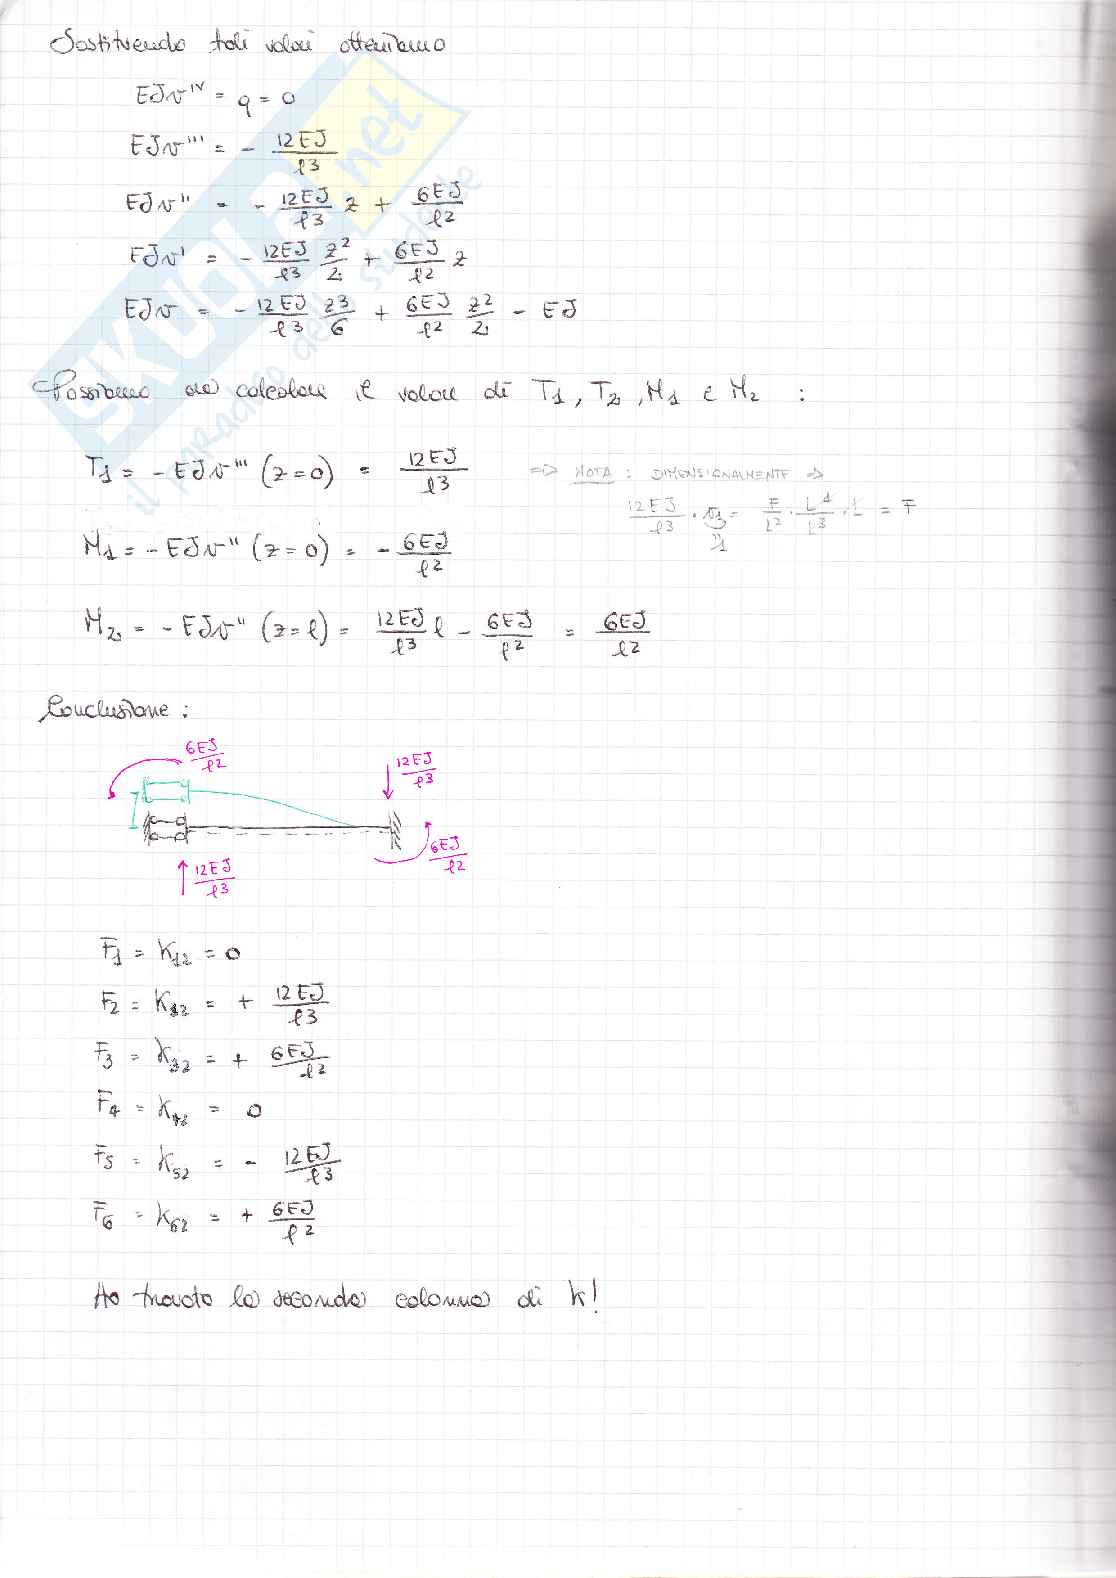 Sostituendo tali valori otteniamo
EJv^IV = q = 0
EJv''' = - 12EJ/ℓ³
EJv'' = - 12EJ/ℓ³ z + 6EJ/ℓ²
EJv' = - 12EJ/ℓ³ z²/2 + 6EJ/ℓ² z
EJv = - 12EJ/ℓ³ z³/6 + 6EJ/ℓ² z²/2 - EJ
Possiamo calcolare il valore di T1, T2, M1 e M2 :
T1 = - EJv''' (z=0) = 12EJ/ℓ³ => NOTA : DIMENSIONALMENTE =>
12EJ/ℓ³ · = F/L² · L⁴/L³ · L = F
1
M1 = - EJv'' (z=0) = - 6EJ/ℓ²
M2 = - EJv'' (z=ℓ) = 12EJ/ℓ³ ℓ - 6EJ/ℓ² = 6EJ/ℓ²
Conclusione :
6EJ/ℓ²
12EJ/ℓ³
6EJ/ℓ²
12EJ/ℓ³
F1 = K12 = 0
F2 = K22 = + 12EJ/ℓ³
F3 = K32 = + 6EJ/ℓ²
F4 = K42 = 0
F5 = K52 = - 12EJ/ℓ³
F6 = K62 = + 6EJ/ℓ²
Ho trovato la seconda colonna di K!
SKUOLA.net
il paradiso dello studente